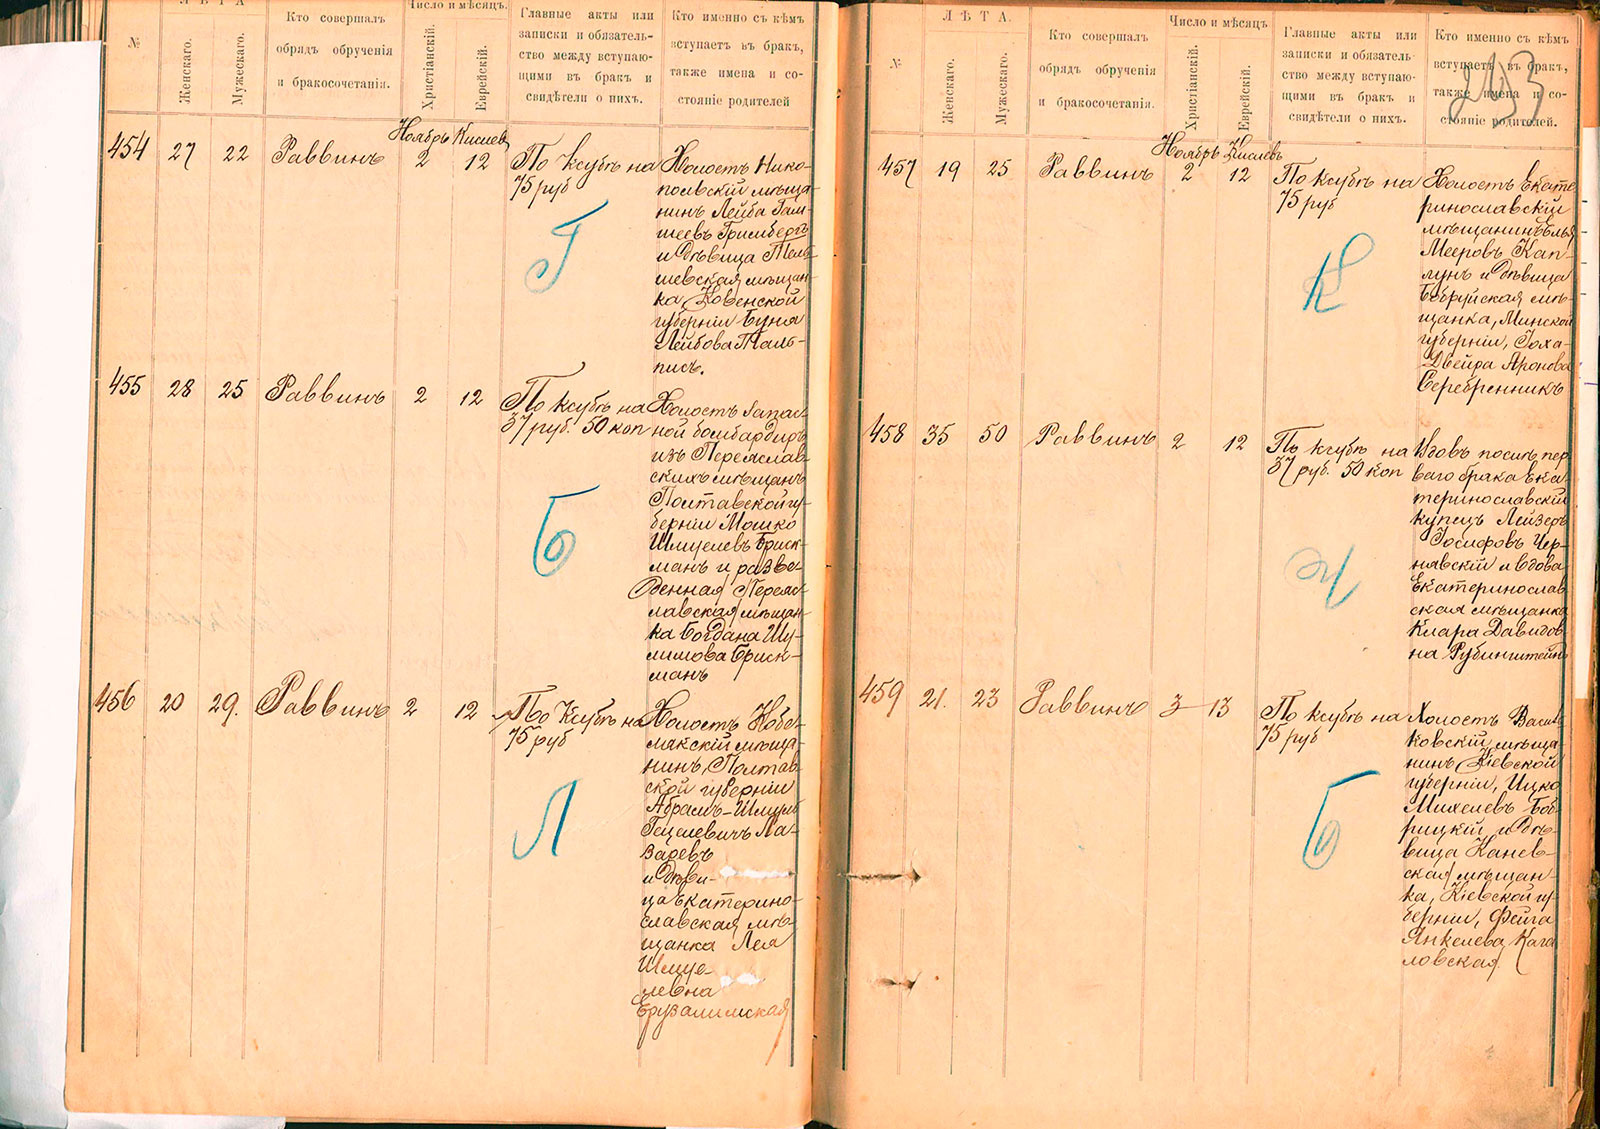 ЛѢТА
№
Женскаго.
Мужескаго.
Кто совершалъ
обрядъ обрученія
и бракосочетанія.
Число и мѣсяцъ.
Христіанскій.
Еврейскій.
Главные акты или
записки и обязатель-
ство между вступаю-
щими въ бракъ и
свидѣтели о нихъ.
Кто именно съ кѣмъ
вступаетъ въ бракъ,
также имена и со-
стояніе родителей
Ноябрь Кислевъ
454 27 22 Раввинъ 2 12
По ксубѣ на
75 руб
Г
Холостъ Нико-
польскій мѣща-
нинъ Лейба Гам-
шеевъ Гримбергъ
и дѣвица Тель-
шевская мѣщан-
ка, Ковенской
губерніи Буня
Лейбова Таль-
писъ.
455 28 25 Раввинъ 2 12
По ксубѣ на
37 руб. 50 коп
Б
Холостъ запас-
ной бомбардиръ
изъ Переяслав-
скихъ мѣщанъ
Полтавской гу-
берніи Мошко
Шмуелевъ Бриск-
манъ и разве-
денная Переяс-
лавская мѣщан-
ка Богдана Шу-
лимова Бриск-
манъ
456 20 29. Раввинъ 2 12
По Ксубѣ на
75 руб
Л
Холостъ Кобе-
лякскій мѣща-
нинъ, Полтав-
ской губерніи
Абрамъ-Шмуль
Гецелевичъ Ла-
заревъ
и дѣви-
ца Екатерино-
славская мѣ-
щанка Лея
Шмуе-
левна
Ерузалимская
ЛѢТА.
№
Женскаго.
Мужескаго.
Кто совершалъ
обрядъ обрученія
и бракосочетанія.
Число и мѣсяцъ.
Христіанскій.
Еврейскій.
Главные акты или
записки и обязатель
ство между вступаю-
щими въ бракъ и
свидѣтели о нихъ.
Кто именно съ кѣмъ
вступаетъ въ бракъ,
также имена и со-
стояніе родителей.
Ноябрь Кислевъ
457 19 25 Раввинъ 2 12
По ксубѣ на
75 руб
К
Холостъ Екате
ринославскій
мѣщанинъ Елья
Мееровъ Кап-
лунъ и дѣвица
Бобруйская мѣ-
щанка, Минской
губерніи, Соха-
Двейра Аронова
Серебренникъ
458 35 50 Раввинъ 2 12
По ксубѣ на
37 руб. 50 коп
Ч
Вдовъ послѣ пер
ваго брака Ека-
теринославскій
купецъ Лейзеръ
Іосифовъ Чер-
нявскій и вдова
Екатеринослав
ская мѣщанка
Клара Давидов
на Рубинштейнъ
459 21. 23 Раввинъ 3 13
По ксубѣ на
75 руб
Б
Холостъ Василь
ковскій мѣща-
нинъ Кіевской
губерніи, Ицко
Михелевъ Боб-
рицкій и дѣ-
вица Канев-
ская мѣщан-
ка, Кіевской гу-
берніи, Фейга
Янкелева Кага
ловская.